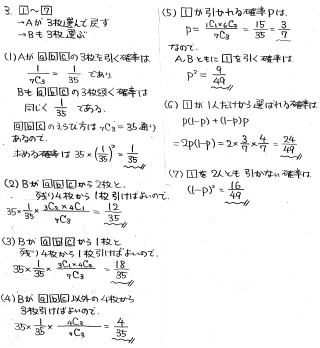 3. 1〜7
→Aが3枚選んで戻す
→Bも3枚選ぶ。
(1) Aが a b c の3枚を引く確率は
1/7C3 = 1/35 であり
Bも a b c の3枚を引く確率は
同じく 1/35 である。
a b c のえらび方は 7C3 = 35通り
あるので、
求める確率は 35×(1/35)² = 1/35
(2) Bが a b c から2枚と、
残り4枚から1枚引けばよいので、
35×1/35×3C2×4C1/7C3 = 12/35
(3) Bが a b c から1枚と
残り4枚から2枚引ければよいので、
35×1/35×3C1×4C2/7C3 = 18/35
(4) Bが a b c 以外の4枚から
3枚引けばよいので、
35×1/35×4C3/7C3 = 4/35
(5) 1 が引かれる確率Pは、
P = 1C1×6C2/7C3 = 15/35 = 3/7
なので、
A, Bともに 1 を引く確率は
P² = 9/49
(6) 1 が1人だけから選ばれる確率は
P(1-P)+(1-P)P
= 2P(1-P) = 2×3/7×4/7 = 24/49
(7) 1 を2人とも引かない確率は
(1-P)² = 16/49